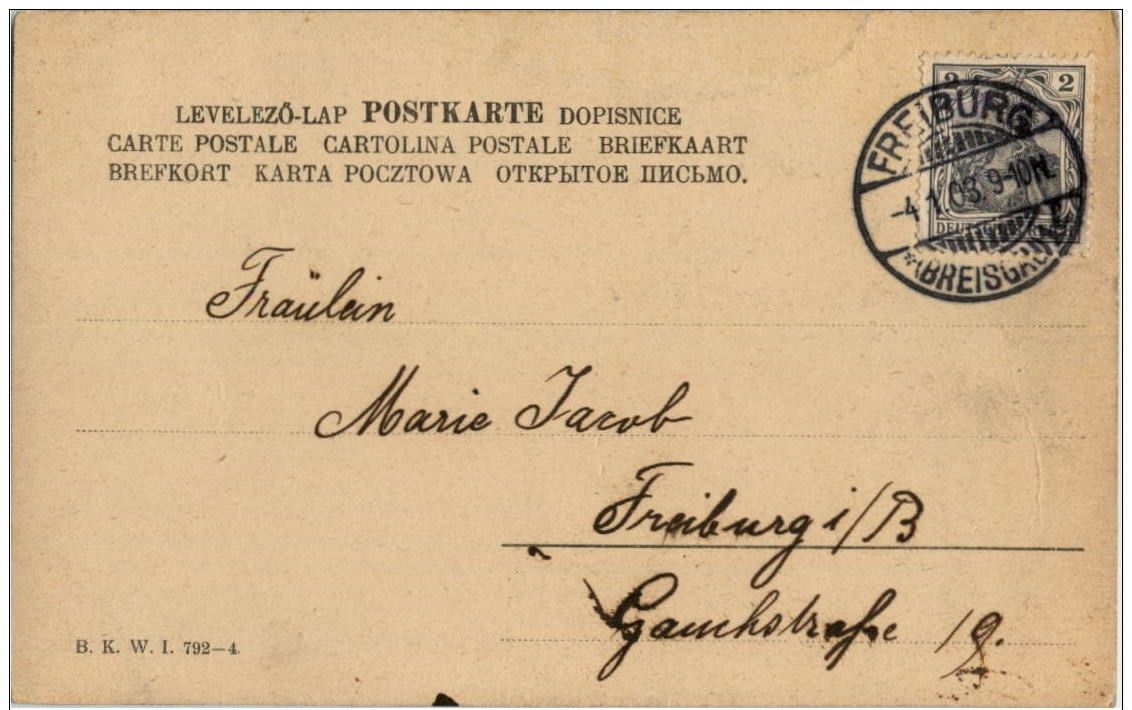 LEVELEZŐ-LAP POSTKARTE DOPISNICE
CARTE POSTALE CARTOLINA POSTALE BRIEFKAART
BREFKORT KARTA POCZTOWA ОТКРЫТОЕ ПИСЬМО.
2 2
FREIBURG
-4.1.03. 9-10N.
(BREISGAU)
Fräulein
Marie Jacob
Freiburg i/B
Gauchstraße 19.
B. K. W. I. 792–4.